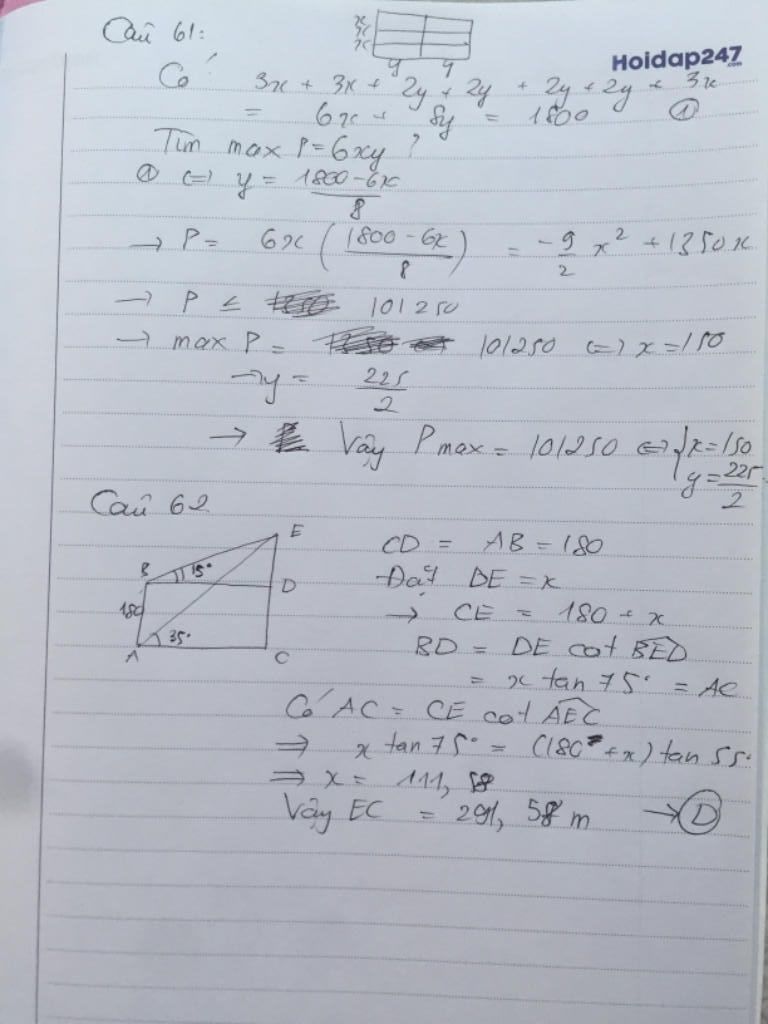 Câu 61:
x
x
x
y y
Hoidap247
.com
Có 3x + 3x + 2y + 2y + 2y + 2y + 3x
= 6x + 8y = 1800 ①
Tìm max P = 6xy ?
① <=> y = 1800 - 6x / 8
→ P = 6x ( 1800 - 6x / 8 ) = -9/2 x² + 1350x
→ P ≤ 101250
→ max P = 101250 <=> x = 150
→ y = 225/2
→ Vậy Pmax = 101250 <=> { x = 150
y = 225/2
Câu 62
E
B 15° D
180
A 35° C
CD = AB = 180
Đặt DE = x
→ CE = 180 + x
BD = DE cot BED
= x tan 75° = AC
Có AC = CE cot AEC
=> x tan 75° = (180 + x) tan 55°
=> x = 111, 58
Vậy EC = 291, 58 m → D